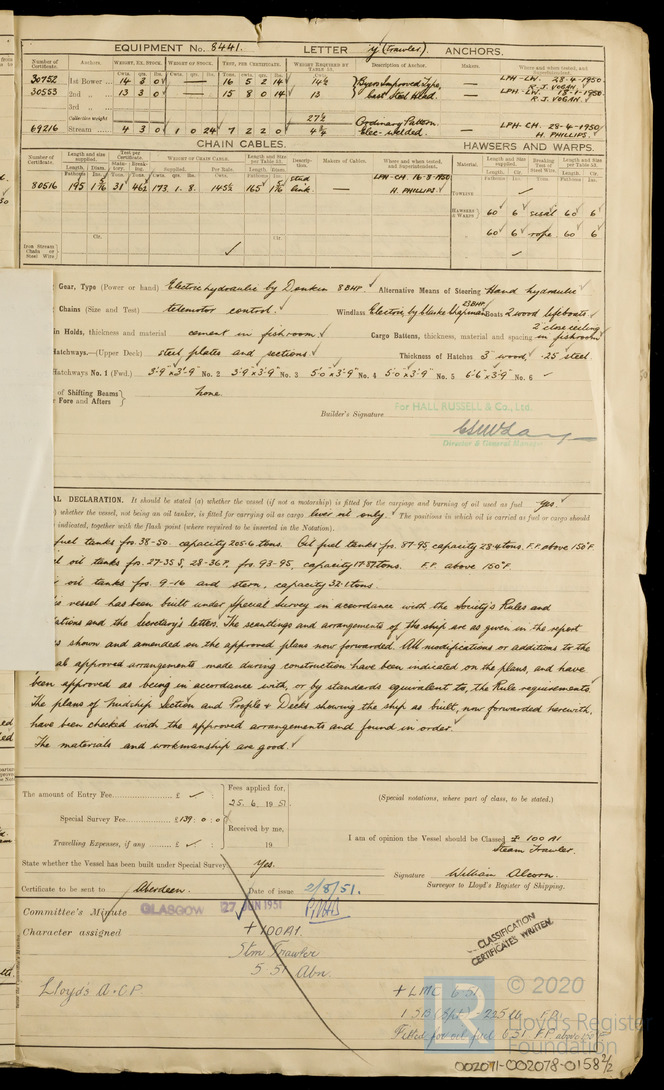 EQUIPMENT No. 8441. LETTER y (trawler). ANCHORS.
Number of Certificate. Anchors. WEIGHT, EX. STOCK. WEIGHT OF STOCK. TEST, PER CERTIFICATE. WEIGHT REQUIRED BY TABLE 53. Description of Anchor. Makers. Where and when tested, and Superintendent.
Cwts. qrs. lbs. Tons. cwts. qrs. lbs. Cwts.
30752 1st Bower 14 3 0 — 16 5 2 14 14½ Byers Improved Type, — LPH-LW. 28-4-1950 R. J. VOGAN.
30553 2nd „ 13 3 0 — 15 8 0 14 13 Cast Steel Head. — LPH-LW. 18-1-1950. R. J. VOGAN.
3rd „
Collective weight 27½
69216 Stream 4 3 0 1 0 24 7 2 2 0 4¾ Ordinary Pattern. Elec-welded. LPH-CH. 28-4-1950 H. PHILLIPS.
CHAIN CABLES. HAWSERS AND WARPS.
Number of Certificate. Length and size supplied. Test per Certificate. WEIGHT OF CHAIN CABLE. Length and Size per Table 53. Description. Makers of Cables. Where and when tested, and Superintendent. Material. Length and Size supplied. Breaking Test of Steel Wire. Length and Size per Table 53.
Fathoms Diam. Tons. Tons. Supplied. Per Rule. Length. Diam.
80516 195 1 5/16 31 46½ 173. 1. 8. 145½ 165 1 5/16 stud link — LPH-CH. 16-8-1950 H. PHILLIPS.
TOWLINE
HAWSERS & WARPS 60 6 sisal 60 6
60 6 rope. 60 6
Iron Stream Chain or Steel Wire
Gear, Type (Power or hand) Electric hydraulic by Donkin 8 BHP. Alternative Means of Steering Hand hydraulic
Chains (Size and Test) telemotor control. Windlass Electric, by Clarke Chapman 23 BHP. Boats 2 wood lifeboats
in Holds, thickness and material cement in fishroom. Cargo Battens, thickness, material and spacing 2 close ceiling in fishroom
atchways.—(Upper Deck) steel plates and sections Thickness of Hatches 3" wood, .25 steel.
atchways No. 1 (Fwd.) 3'-9" x 3'-9" No. 2 3'-9" x 3'-9" No. 3 5'-0" x 3'-9" No. 4 5'-0" x 3'-9" No. 5 6'-6" x 3'-9" No. 6
of Shifting Beams Fore and Afters } None
Builder's Signature For HALL RUSSELL & Co., Ltd.
Director & General Manager
AL DECLARATION. It should be stated (a) whether the vessel (if not a motorship) is fitted for the carriage and burning of oil used as fuel Yes.
) whether the vessel, not being an oil tanker, is fitted for carrying oil as cargo liver oil only. The positions in which oil is carried as fuel or cargo should
indicated, together with the flash point (where required to be inserted in the Notation).
fuel tanks frs. 38-50. capacity 205.6 tons. Oil fuel tanks frs. 87-95, capacity 28.4 tons. F.P. above 150°F.
oil tanks frs. 27-35 S, 28-36 P, frs. 93-95, capacity 17.87 tons. F.P. above 150°F.
oil tanks frs. 9-16 and stern, capacity 32.1 tons.
vessel has been built under Special Survey in accordance with the Society's Rules and
ations and the Secretary's letters. The scantlings and arrangements of the ship are as given in the report
shown and amended on the approved plans now forwarded. All modifications or additions to the
approved arrangements made during construction have been indicated on the plans, and have
been approved as being in accordance with, or by standards equivalent to, the Rule requirements.
The plans of Midship Section and Profile & Decks showing the ship as built, now forwarded herewith,
have been checked with the approved arrangements and found in order.
The materials and workmanship are good.
The amount of Entry Fee £ : Fees applied for,
25. 6. 1951.
(Special notations, where part of class, to be stated.)
Special Survey Fee £139 : 0 : 0 Received by me,
Travelling Expenses, if any £ : 19
I am of opinion the Vessel should be Classed + 100 A1
Steam Trawler.
State whether the Vessel has been built under Special Survey Yes.
Signature William Alcorn.
Surveyor to Lloyd's Register of Shipping.
Certificate to be sent to Aberdeen. Date of issue 2/8/51.
Committee's Minute GLASGOW 27 JUN 1951
Character assigned + 100 A1.
Stm Trawler
5.51 Abn.
CLASSIFICATION CERTIFICATES WRITTEN.
Lloyd's A & CP.
+ LMC 6.51
1 SB (Spt) 225 lb FD
Fitted for oil fuel 6.51 FP above 150°F
© 2020
LR
Lloyd's Register
Foundation
002071-002078-0158 2/2